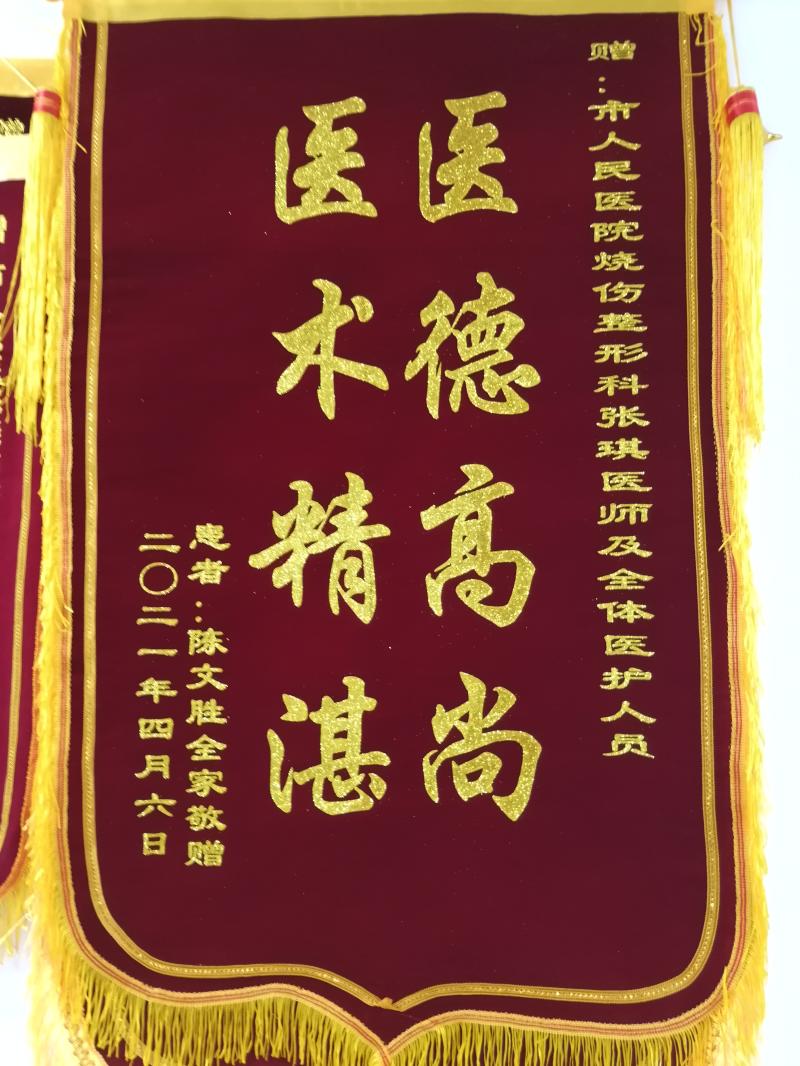 赠：市人民医院烧伤整形科张琪医师及全体医护人员
医德高尚
医术精湛
患者：陈文胜全家敬赠
二〇二一年四月六日